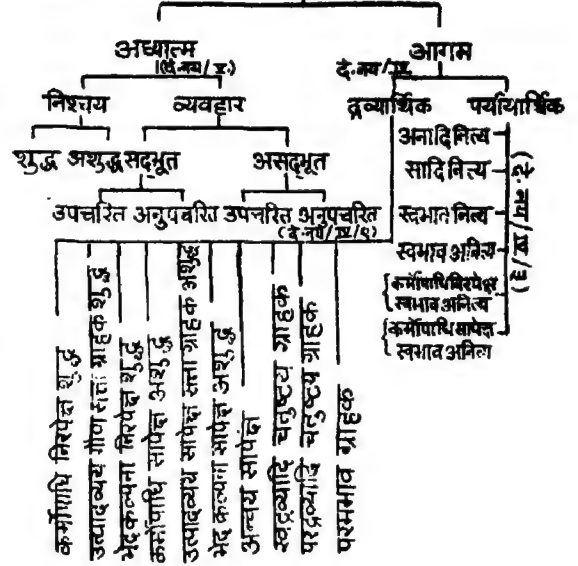 अध्यात्म
(दे. नय/V.)
आगम
दे. नय/IV
निश्चय
व्यवहार
द्रव्यार्थिक
पर्यायार्थिक
शुद्ध
अशुद्ध
सद्भूत
असद्भूत
अनादि नित्य
सादि नित्य
स्वभाव नित्य
स्वभाव अनित्य
कर्मोपाधि निरपेक्ष
स्वभाव अनित्य
कर्मोपाधि सापेक्ष
स्वभाव अनित्य
(दे. नय/IV/३)
उपचरित
अनुपचरित
उपचरित
अनुपचरित
(दे. नय/IV/९)
कर्मोपाधि निरपेक्ष शुद्ध
उत्पादव्यय गौण सत्ता ग्राहक शुद्ध
भेदकल्पना निरपेक्ष शुद्ध
कर्मोपाधि सापेक्ष अशुद्ध
उत्पादव्यय सापेक्ष सत्ता ग्राहक अशुद्ध
भेद कल्पना सापेक्ष अशुद्ध
अन्वय सापेक्ष
स्वद्रव्यादि चतुष्टय ग्राहक
परद्रव्यादि चतुष्टय ग्राहक
परमभाव ग्राहक